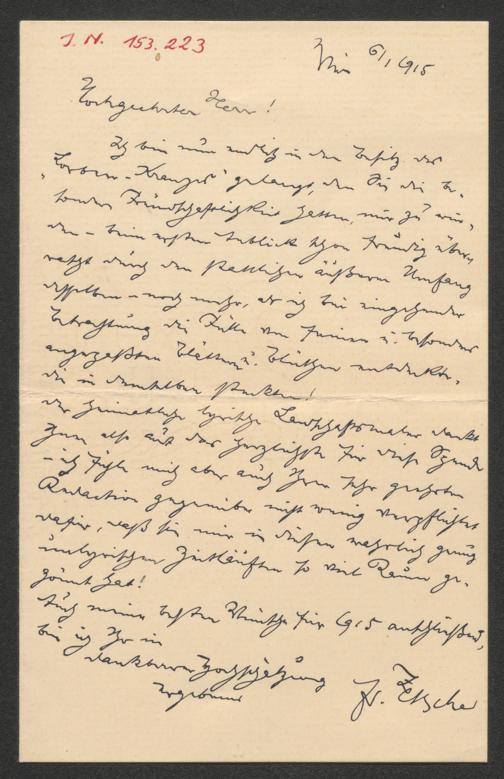 J. N. 153.223
Wien 6/1 1915
Hochgeehrter Herr!
Ich bin nun endlich in den Besitz des
"Lorbeer-Kranzes" gelangt, den Sie die be-
sondere Freundschaftlichkeit hatten, mir zu win-
den – beim ersten Anblick schon freudig über-
rascht durch den stattlichen äußeren Umfang
desselben – noch mehr, als ich bei eingehender
Betrachtung die Fülle von feinen u. besonders
angepaßten Blättern u. Blüthen entdeckte,
die in demselben stecken!
Der heimatliche lyrische Landschaftsmaler dankt
Ihnen also auf das herzlichste für diese Spende
– ich fühle mich aber auch Ihrer sehr geehrten
Redaction gegenüber nicht wenig verpflichtet
dafür, daß sie mir in diesen wahrlich genug
unlyrischen Zeitläuften so viel Raum ge-
gönnt hat!
Auch meine besten Wünsche für 1915 anschließend,
bin ich Ihr in
dankbarer Hochschätzung
ergebener
Fr. Zetsche